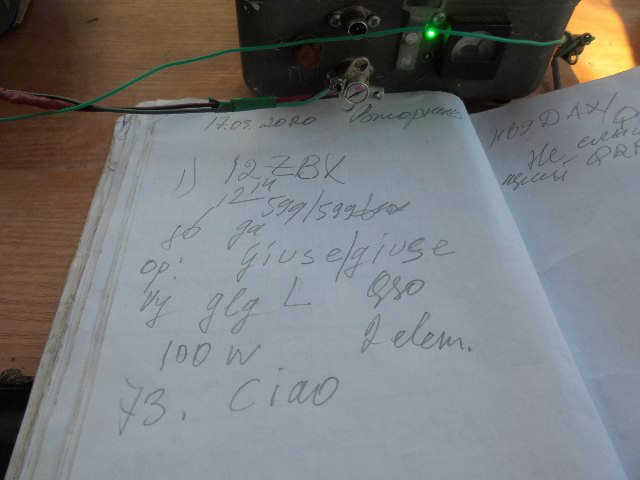 17.03.2020 Вторник.
1) I2ZBX
12 14
599/599
ga
op: giuse/giuse
vy glg L QSO
100 W 2 elem.
73. Ciao
HB9DAX/Q
Не
QRP